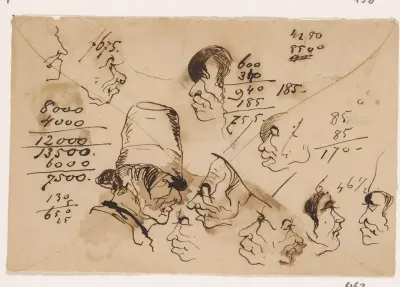 675.
4280
8500
600
340
940
185
755
185-
85
85
170-
8000
4000
12000
13500
6000
7500-
130
5
650
25
46½